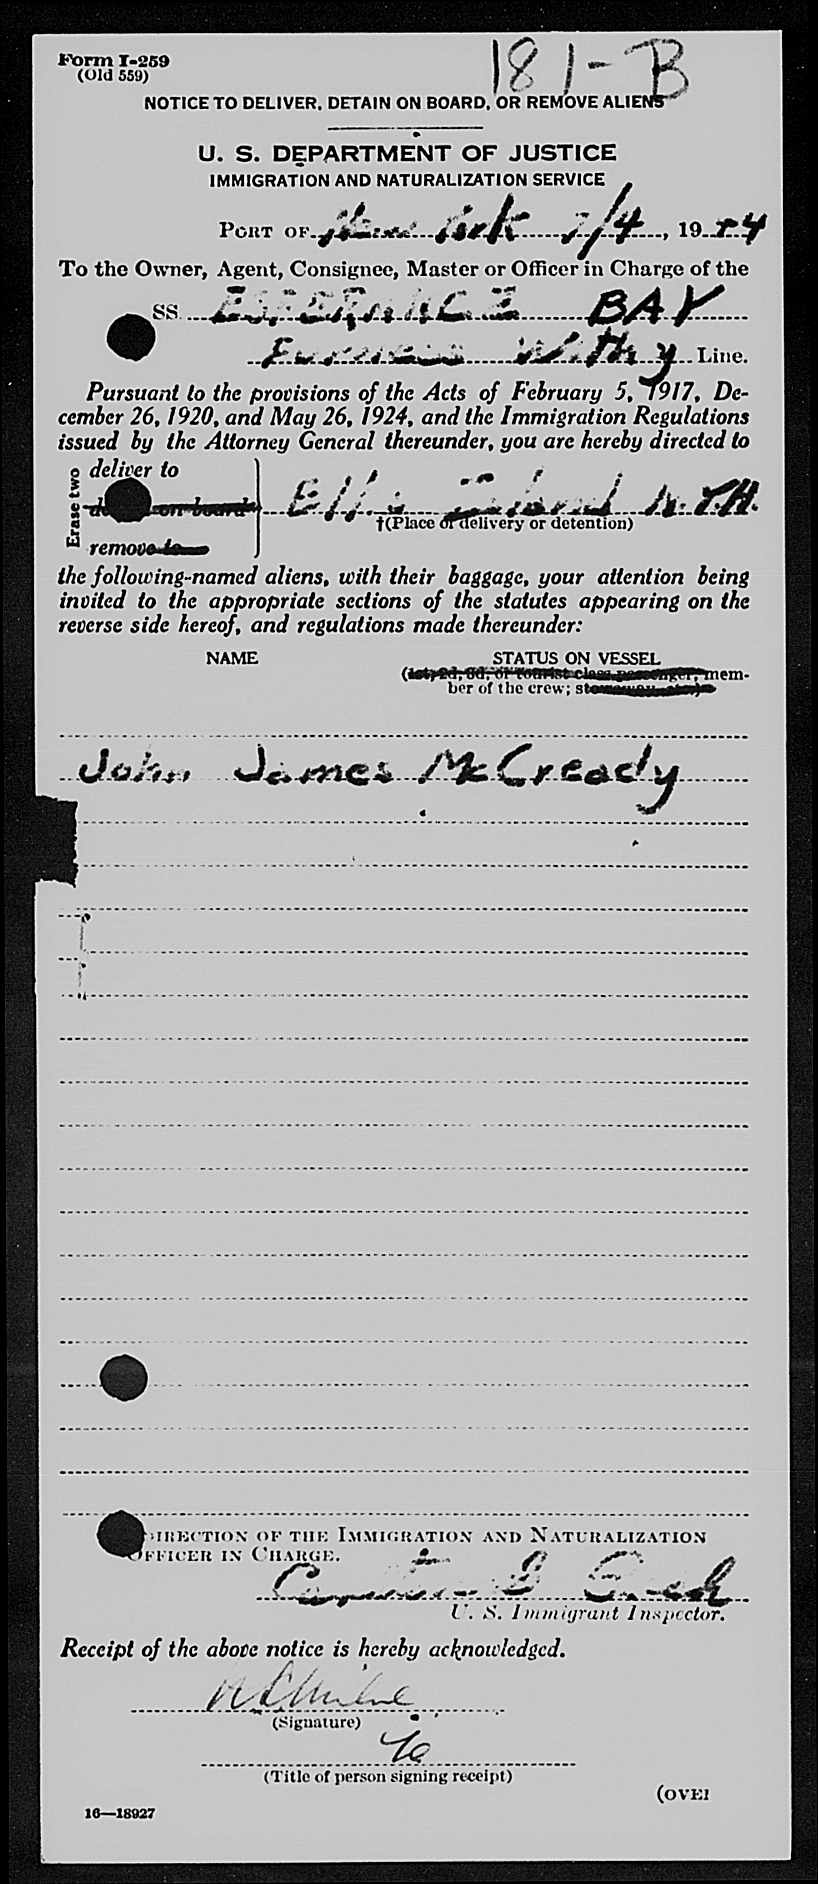 181-B
Form I-259
(Old 559)
NOTICE TO DELIVER, DETAIN ON BOARD, OR REMOVE ALIENS
U. S. DEPARTMENT OF JUSTICE
IMMIGRATION AND NATURALIZATION SERVICE
PORT OF New York 7/4, 1944
To the Owner, Agent, Consignee, Master or Officer in Charge of the
SS. ESPERANCE BAY
Furness Withy Line.
Pursuant to the provisions of the Acts of February 5, 1917, De-
cember 26, 1920, and May 26, 1924, and the Immigration Regulations
issued by the Attorney General thereunder, you are hereby directed to
Erase two
deliver to
on board
Ellis Island N.Y.H.
†(Place of delivery or detention)
remove to
the following-named aliens, with their baggage, your attention being
invited to the appropriate sections of the statutes appearing on the
reverse side hereof, and regulations made thereunder:
NAME STATUS ON VESSEL
(1st, 2d, 3d, or tourist class passenger; mem-
ber of the crew;
John James McCready
DIRECTION OF THE IMMIGRATION AND NATURALIZATION
OFFICER IN CHARGE.
U. S. Immigrant Inspector.
Receipt of the above notice is hereby acknowledged.
(Signature)
(Title of person signing receipt)
(OVER
16—18927